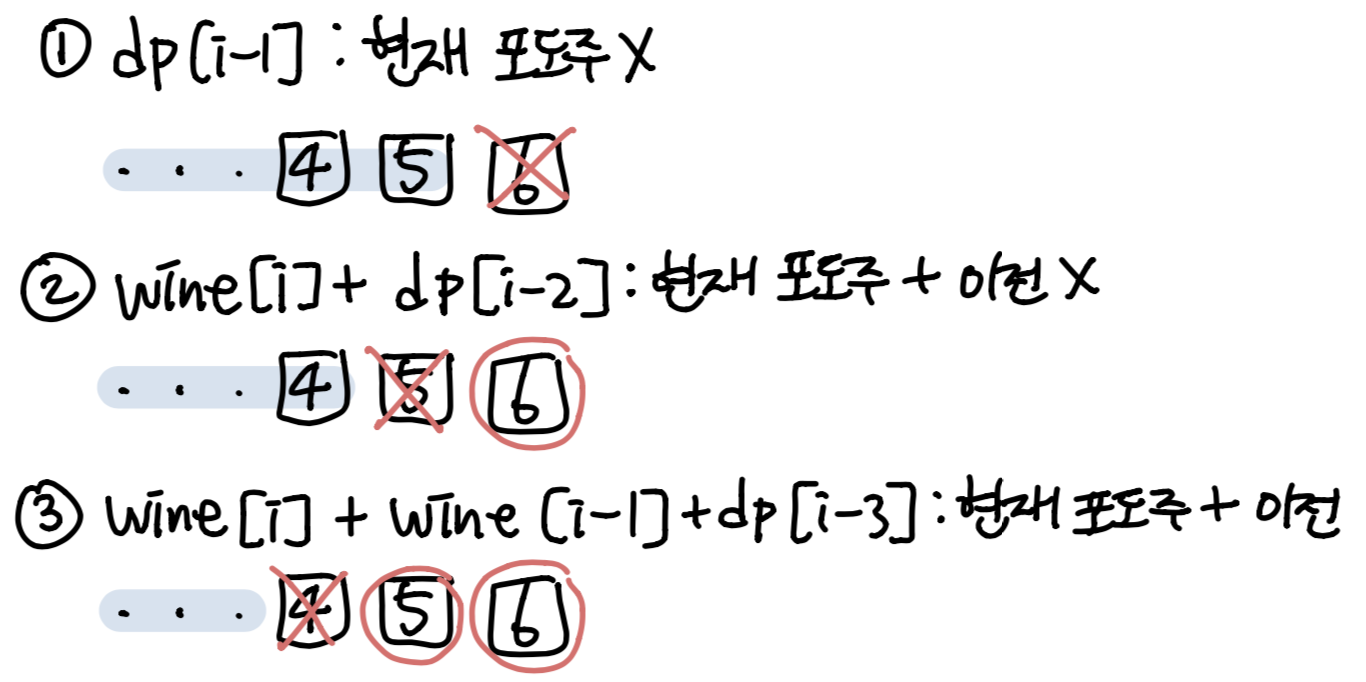 ① dp[i-1] : 현재 포도주 X
. . . 4 5 6
② wine[i] + dp[i-2] : 현재 포도주 + 이전 X
. . . 4 5 6
③ wine[i] + wine[i-1] + dp[i-3] : 현재 포도주 + 이전
. . . 4 5 6